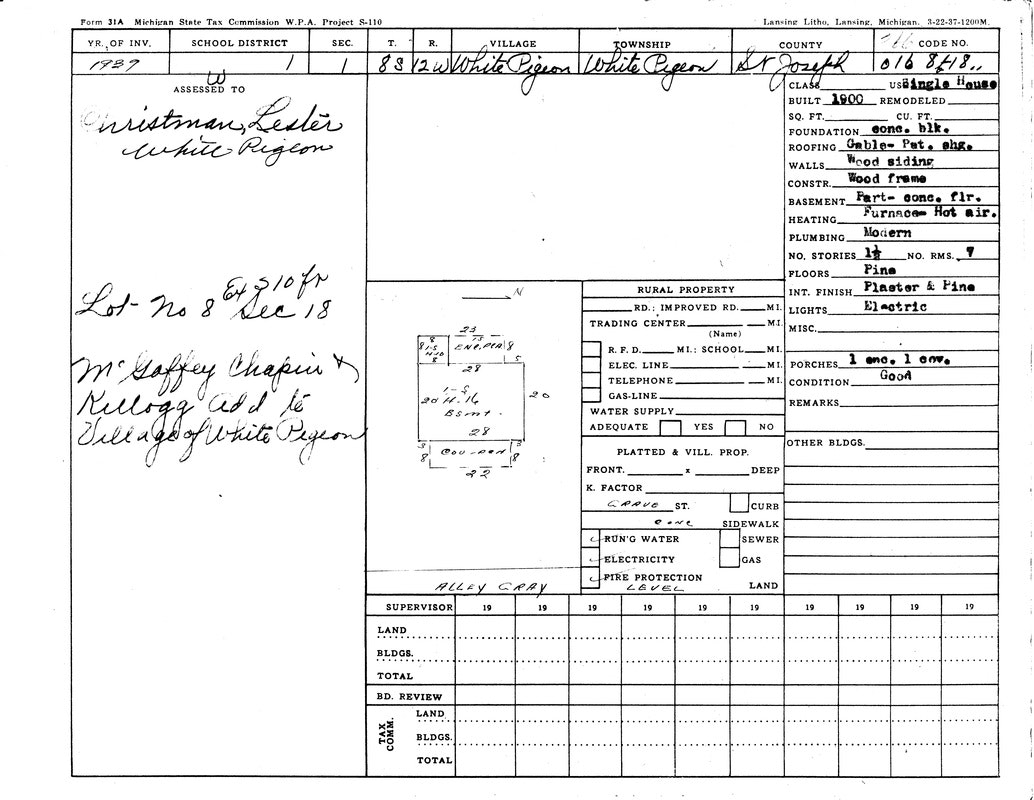 Form 31A Michigan State Tax Commission W.P.A. Project S-110
Lansing Litho, Lansing, Michigan. 3-22-37-1200M.
YR. OF INV. SCHOOL DISTRICT SEC. T. R. VILLAGE TOWNSHIP COUNTY CODE NO.
1937 W 1 1 8S 12W White Pigeon White Pigeon St Joseph 016 8f-18
ASSESSED TO
Christman, Lester
White Pigeon
Lot No 8 Ex S 10 ft
Sec 18
McGaffey Chapin &
Kellogg Add to
Village of White Pigeon
N
23
8 8 13 8
1-S ENC. PCH
H-10 5
28
1-S
20 H-16 20
Bsmt.
28
3 3
8 COV-PCH 8
22
ALLEY GRAV
RURAL PROPERTY
RD.; IMPROVED RD. MI.
TRADING CENTER MI.
(Name)
R. F. D. MI.; SCHOOL MI.
ELEC. LINE MI.
TELEPHONE MI.
GAS-LINE
WATER SUPPLY
ADEQUATE YES NO
PLATTED & VILL. PROP.
FRONT. x DEEP
K. FACTOR
GRAVE ST. CURB
CONC SIDEWALK
RUN'G WATER SEWER
ELECTRICITY GAS
FIRE PROTECTION
LEVEL LAND
CLASS USE Single House
BUILT 1900 REMODELED
SQ. FT. CU. FT.
FOUNDATION conc. blk.
ROOFING Gable- Pat. shg.
WALLS Wood siding
CONSTR. Wood frame
BASEMENT Part- conc. flr.
HEATING Furnace- Hot air.
PLUMBING Modern
NO. STORIES 1½ NO. RMS. 7
FLOORS Pine
INT. FINISH Plaster & Pine
LIGHTS Electric
MISC.
PORCHES 1 enc. 1 cov.
CONDITION Good
REMARKS
OTHER BLDGS.
SUPERVISOR 19 19 19 19 19 19 19 19 19 19
LAND
BLDGS.
TOTAL
BD. REVIEW
TAX COMM.
LAND
BLDGS.
TOTAL